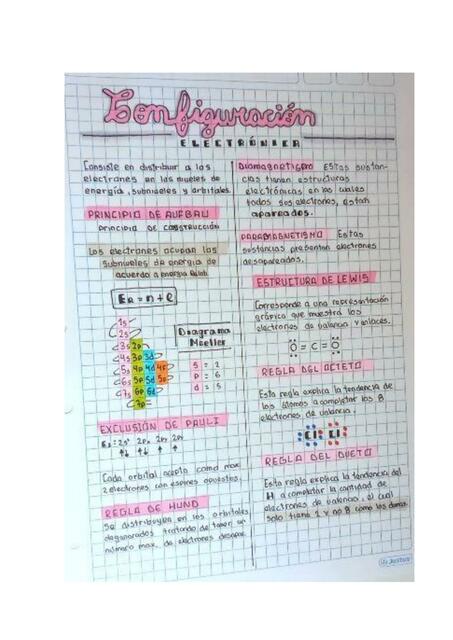 Configuración
ELECTRÓNICA
Consiste en distribuir a los
electrones en los niveles de
energía, subniveles y orbitales.
PRINCIPIO DE AUFBAU
PRINCIPIO DE CONSTRUCCIÓN
Los electrones ocupan los
subniveles de energía de
acuerdo a energía Relat.
ER = n + l
1s
2s
3s 2p
4s 3p 3d
5s 4p 4d 4f
6s 5p 5d 5f
7s 6p 6d
7p
Diagrama
Moeller
s = 2
p = 6
d = 5
EXCLUSIÓN DE PAULI
2px 2py
Cada orbital acepta como max
2 electrones con espines opuestos.
REGLA DE HUND
Se distribuyen en los orbitales
degenerados tratando de tener un
número max. de electrones desapar.
DIAMAGNETISMO Estas sustan-
cias tienen estructuras
electrónicas en las cuales
todos sus electrones, están
apareados.
PARAMAGNETISMO Estas
sustancias presentan electrones
desapareados.
ESTRUCTURA DE LEWIS
Corresponde a una representación
gráfica que muestra los
electrones de valencia y enlaces.
O = C = O
REGLA DEL OCTETO
Esta regla explica la tendencia de
los átomos a completar los 8
electrones de valencia.
Cl Cl
REGLA DEL DUETO
Esta regla explica la tendencia del
H a completar la cantidad de
electrones de valencia, el cual
solo tiene 1 y no 8 como los demás